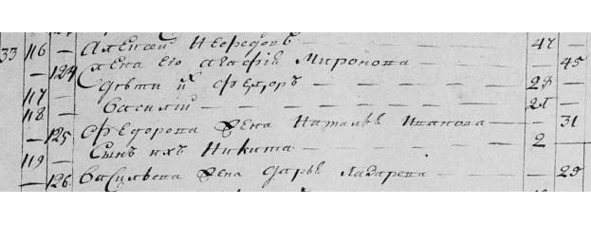 33 116 — Алексей Нефедовъ — 47 —
— 124 жена его Агафiя Миронова — 45
дѣти их Федоръ — 28 —
117 —
118 — Василiй — 21 —
— 125 Федорова жена Наталья Иванова — 31
119 — Сынъ ихъ Никита — 2 —
— 126 Васильева жена Дарья Лазарева — 29